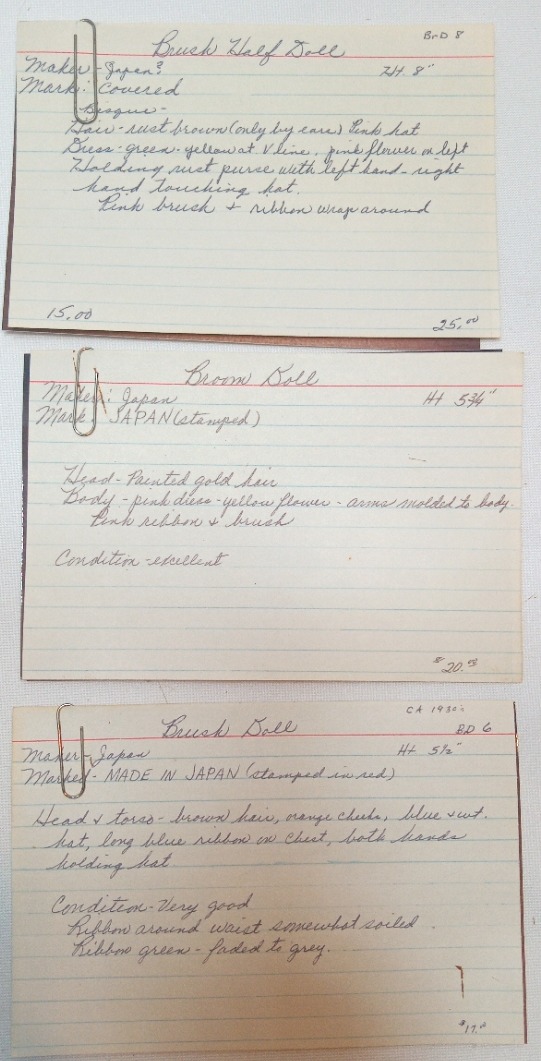 BrD 8
Brush Half Doll
Maker - Japan?
ZH. 8"
Mark: Covered
Bisque -
Hair - rust brown (only by ears) Pink hat
Dress - green - yellow at V line, pink flower on left
Holding rust purse with left hand - right
hand touching hat.
Pink brush + ribbon wrap around
15.00
25.00
Broom Doll
Maker: Japan
Ht 5 3/4"
Mark: JAPAN (stamped)
Head - Painted gold hair
Body - pink dress - yellow flower - arms molded to body.
Pink ribbon & brush
Condition - excellent
$20.00
CA 1930s
Brush Doll
BD 6
Maker - Japan
Ht 5 1/2"
Marked - MADE IN JAPAN (stamped in red)
Head & torso - brown hair, orange cheeks, blue & wt.
hat, long blue ribbon on chest, both hands
holding hat
Condition - Very good
Ribbon around waist somewhat soiled.
Ribbon green - faded to grey.
$17.00